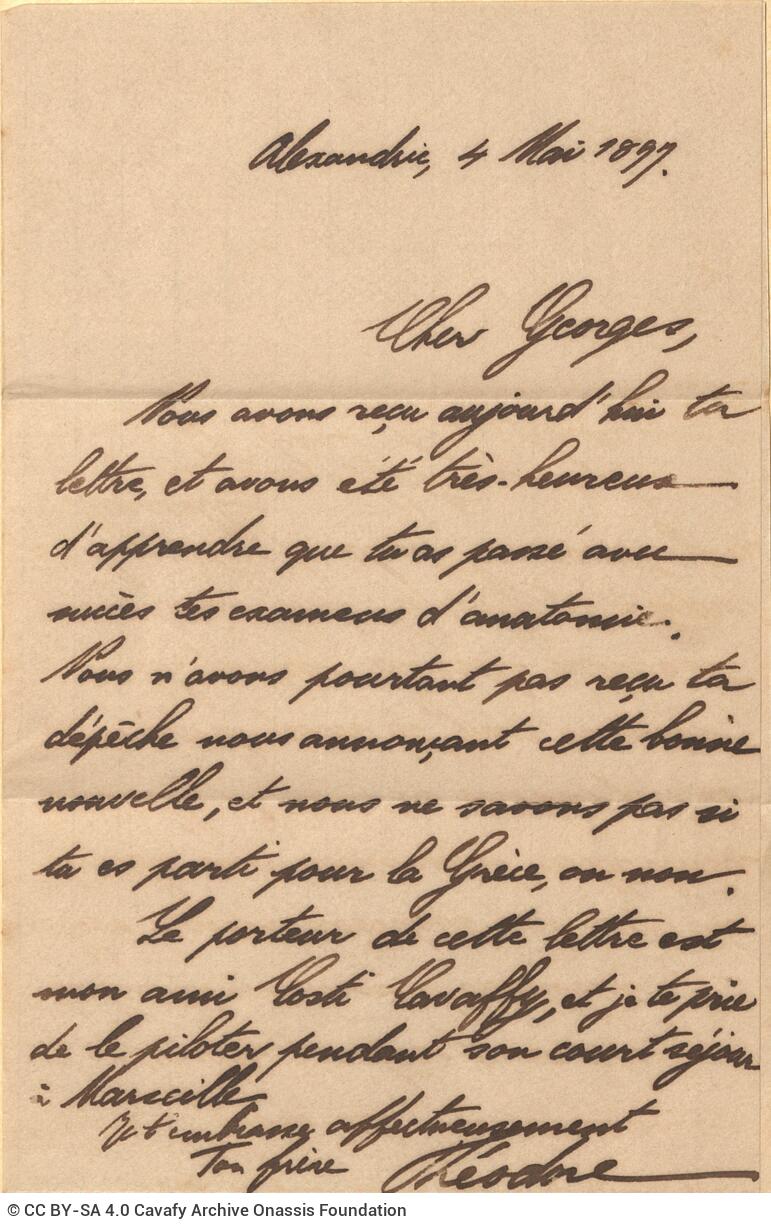 Alexandrie, 4 Mai 1897.
Cher Georges,
Nous avons reçu aujourd'hui ta
lettre, et avons été très-heureux
d'apprendre que tu as passé avec
succès tes examens d'anatomie.
Nous n'avons pourtant pas reçu ta
dépêche nous annonçant cette bonne
nouvelle, et nous ne savons pas si
tu es parti pour la Grèce, ou non.
Le porteur de cette lettre est
mon ami Costi Cavaffy, et je te prie
de le piloter pendant son court séjour
à Marseille
Je t'embrasse affectueusement
Ton frère Théodore
© CC BY-SA 4.0 Cavafy Archive Onassis Foundation